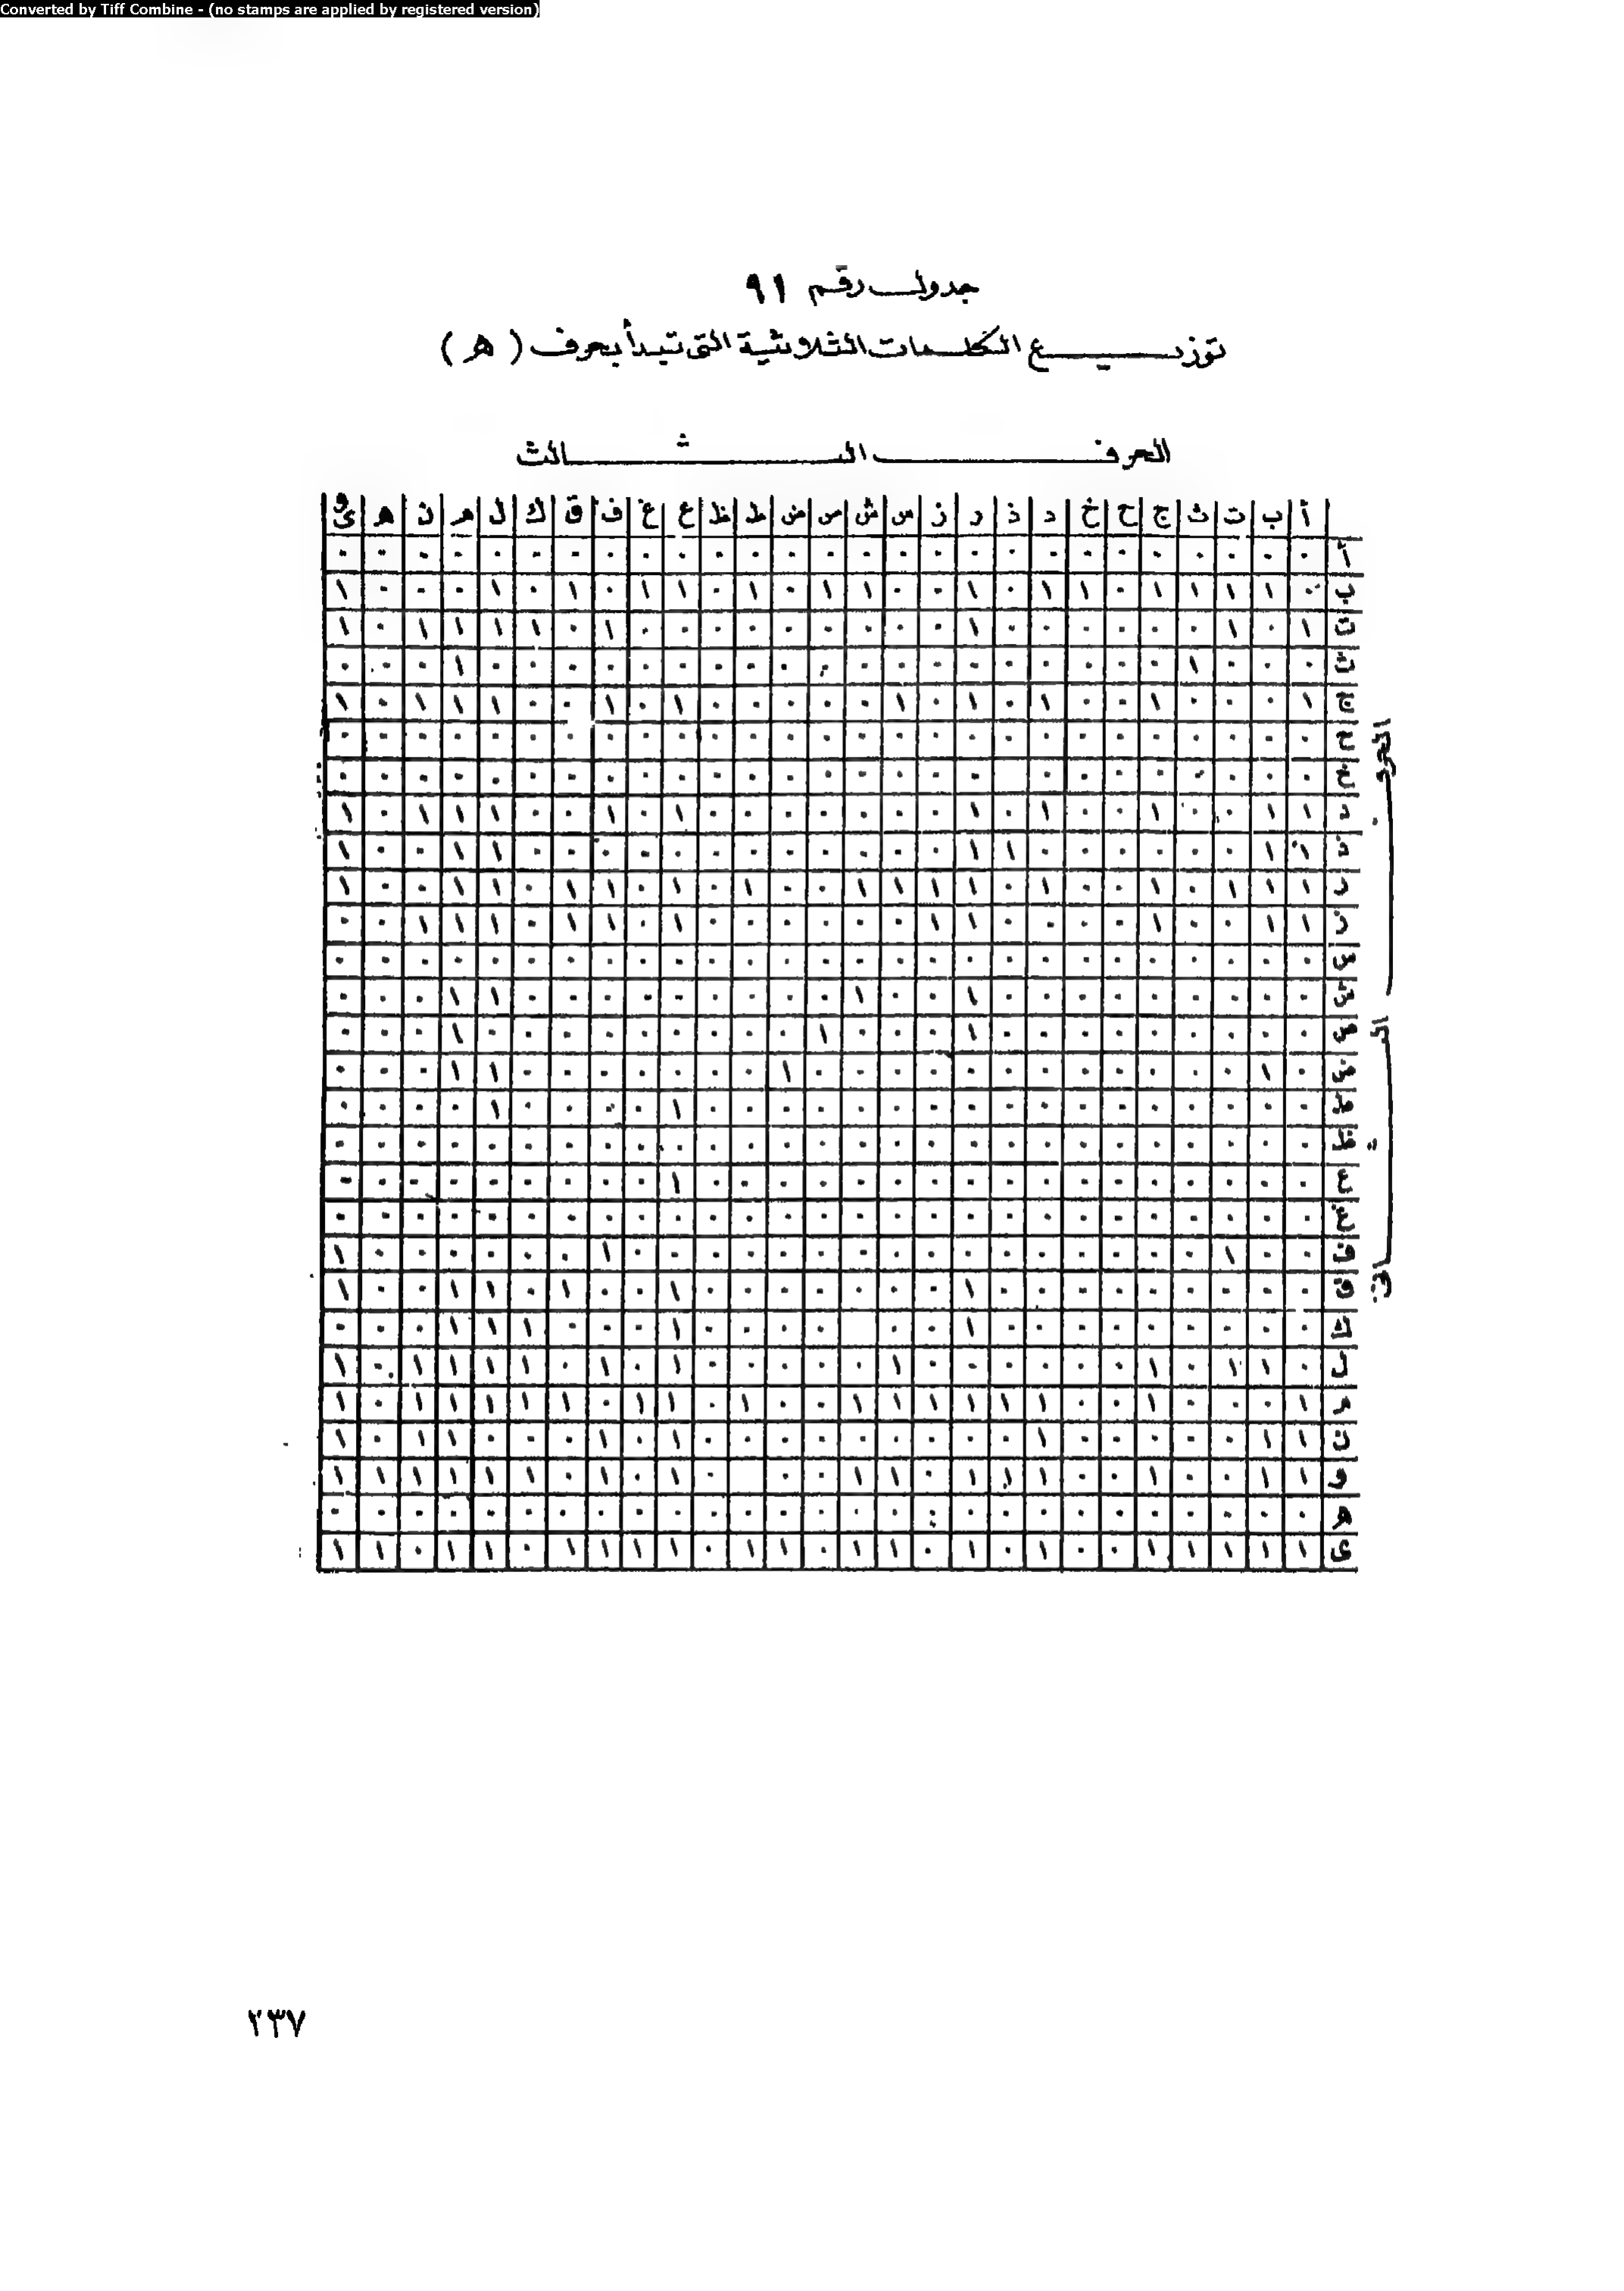 Converted by Tiff Combine - (no stamps are applied by registered version)
جدول رقم ٩١
توزيع الكلمات الثلاثية التى تبدأ بحرف ( ه )
الحرف الثالث
أ ب ت ث ج ح خ د ذ ر ز س ش ص ض ط ظ ع غ ف ق ك ل م ن ه و ى
أ ٠ ٠ ٠ ٠ ٠ ٠ ٠ ٠ ٠ ٠ ٠ ٠ ٠ ٠ ٠ ٠ ٠ ٠ ٠ ٠ ٠ ٠ ٠ ٠ ٠ ٠ ٠
ب ٠ ١ ١ ١ ١ ٠ ١ ١ ٠ ١ ٠ ٠ ١ ١ ٠ ١ ٠ ١ ١ ٠ ١ ٠ ١ ٠ ٠ ٠ ١
ت ١ ٠ ١ ٠ ٠ ٠ ٠ ٠ ٠ ١ ٠ ٠ ٠ ٠ ٠ ٠ ٠ ٠ ٠ ١ ٠ ١ ١ ١ ١ ٠ ١
ث ٠ ٠ ٠ ١ ٠ ٠ ٠ ٠ ٠ ٠ ٠ ٠ ٠ ٠ ٠ ٠ ٠ ٠ ٠ ٠ ٠ ٠ ٠ ١ ٠ ٠ ٠
ج ١ ٠ ٠ ٠ ١ ٠ ٠ ١ ٠ ١ ٠ ١ ٠ ٠ ٠ ٠ ٠ ١ ٠ ١ ٠ ٠ ١ ١ ١ ٠ ١
ح ٠ ٠ ٠ ٠ ٠ ٠ ٠ ٠ ٠ ٠ ٠ ٠ ٠ ٠ ٠ ٠ ٠ ٠ ٠ ٠ ٠ ٠ ٠ ٠ ٠ ٠ ٠
خ ٠ ٠ ٠ ٠ ٠ ٠ ٠ ٠ ٠ ٠ ٠ ٠ ٠ ٠ ٠ ٠ ٠ ٠ ٠ ٠ ٠ ٠ ٠ ٠ ٠ ٠
د ١ ١ ٠ ٠ ١ ٠ ٠ ١ ٠ ١ ٠ ٠ ٠ ٠ ٠ ٠ ٠ ١ ٠ ١ ٠ ٠ ١ ١ ١ ٠ ١
ذ ١ ١ ٠ ٠ ٠ ٠ ٠ ٠ ١ ١ ٠ ٠ ٠ ٠ ٠ ٠ ٠ ٠ ٠ ٠ ٠ ٠ ١ ١ ٠ ٠ ١
ر ١ ١ ١ ٠ ١ ٠ ٠ ١ ٠ ١ ١ ١ ١ ٠ ٠ ١ ٠ ١ ٠ ١ ١ ٠ ١ ١ ٠ ٠ ١
ز ١ ١ ٠ ٠ ١ ٠ ٠ ٠ ٠ ١ ١ ٠ ٠ ٠ ٠ ٠ ٠ ١ ٠ ١ ١ ٠ ١ ١ ١ ٠ ٠
س ٠ ٠ ٠ ٠ ٠ ٠ ٠ ٠ ٠ ٠ ٠ ٠ ٠ ٠ ٠ ٠ ٠ ٠ ٠ ٠ ٠ ٠ ٠ ٠ ٠ ٠ ٠
ش ٠ ٠ ٠ ٠ ٠ ٠ ٠ ٠ ٠ ١ ٠ ٠ ١ ٠ ٠ ٠ ٠ ٠ ٠ ٠ ٠ ٠ ١ ١ ٠ ٠ ٠
ص ٠ ٠ ٠ ٠ ٠ ٠ ٠ ٠ ٠ ١ ٠ ٠ ٠ ١ ٠ ٠ ٠ ٠ ٠ ٠ ٠ ٠ ٠ ١ ٠ ٠ ٠
ض ٠ ١ ٠ ٠ ٠ ٠ ٠ ٠ ٠ ٠ ٠ ٠ ٠ ٠ ١ ٠ ٠ ٠ ٠ ٠ ٠ ٠ ١ ١ ٠ ٠ ٠
ط ٠ ٠ ٠ ٠ ٠ ٠ ٠ ٠ ٠ ٠ ٠ ٠ ٠ ٠ ٠ ٠ ٠ ١ ٠ ٠ ٠ ٠ ١ ٠ ٠ ٠ ٠
ظ ٠ ٠ ٠ ٠ ٠ ٠ ٠ ٠ ٠ ٠ ٠ ٠ ٠ ٠ ٠ ٠ ٠ ٠ ٠ ٠ ٠ ٠ ٠ ٠ ٠ ٠ ٠
ع ٠ ٠ ٠ ٠ ٠ ٠ ٠ ٠ ٠ ٠ ٠ ٠ ٠ ٠ ٠ ٠ ٠ ١ ٠ ٠ ٠ ٠ ٠ ٠ ٠ ٠ ٠
غ ٠ ٠ ٠ ٠ ٠ ٠ ٠ ٠ ٠ ٠ ٠ ٠ ٠ ٠ ٠ ٠ ٠ ٠ ٠ ٠ ٠ ٠ ٠ ٠ ٠ ٠ ٠
ف ٠ ٠ ١ ٠ ٠ ٠ ٠ ٠ ٠ ٠ ٠ ٠ ٠ ٠ ٠ ٠ ٠ ٠ ٠ ١ ٠ ٠ ٠ ٠ ٠ ٠ ١
ق ٠ ٠ ٠ ٠ ٠ ٠ ٠ ٠ ٠ ١ ٠ ٠ ٠ ٠ ٠ ٠ ٠ ١ ٠ ٠ ١ ٠ ١ ١ ٠ ٠ ١
ك ٠ ٠ ٠ ٠ ٠ ٠ ٠ ٠ ٠ ١ ٠ ٠ ٠ ٠ ٠ ٠ ١ ٠ ٠ ٠ ١ ١ ١ ٠ ٠ ٠
ل ٠ ١ ١ ٠ ١ ٠ ٠ ٠ ٠ ٠ ٠ ١ ٠ ٠ ٠ ٠ ٠ ١ ٠ ١ ٠ ١ ١ ١ ١ ٠ ١
م ١ ٠ ٠ ٠ ١ ٠ ٠ ١ ١ ١ ١ ١ ١ ٠ ٠ ١ ٠ ١ ١ ٠ ١ ١ ١ ١ ١ ٠ ١
ن ١ ١ ٠ ٠ ٠ ٠ ٠ ١ ٠ ٠ ٠ ٠ ٠ ٠ ٠ ٠ ٠ ١ ٠ ١ ٠ ٠ ٠ ١ ١ ٠ ١
و ١ ١ ٠ ٠ ١ ٠ ٠ ١ ١ ١ ٠ ١ ١ ٠ ٠ ٠ ١ ٠ ١ ٠ ١ ١ ١ ١ ١ ١
ه ٠ ٠ ٠ ٠ ٠ ٠ ٠ ٠ ٠ ٠ ٠ ٠ ٠ ٠ ٠ ٠ ٠ ٠ ٠ ٠ ٠ ٠ ٠ ٠ ٠ ٠ ٠
ى ١ ١ ١ ١ ١ ٠ ٠ ١ ٠ ١ ٠ ١ ١ ٠ ١ ١ ٠ ١ ١ ١ ١ ٠ ١ ١ ٠ ١ ١
الحرف الثانى
٢٣٧